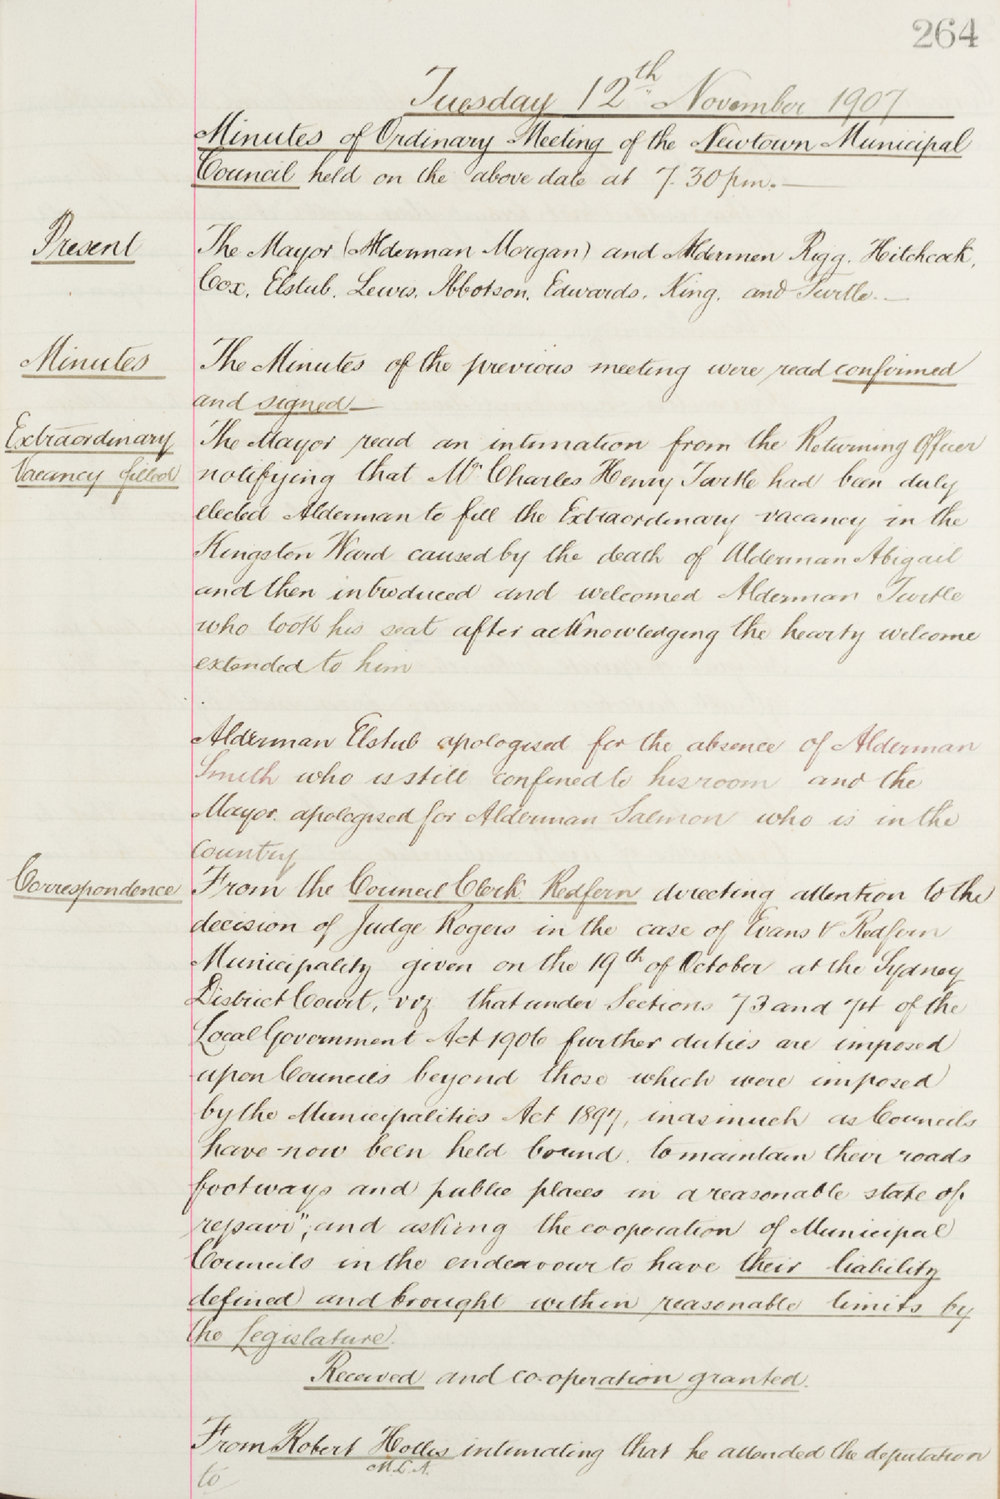 264
Tuesday 12th November 1907
Minutes of Ordinary Meeting of the Newtown Municipal
Council held on the above date at 7.30 pm.
Present
The Mayor (Alderman Morgan) and Aldermen Rigg, Hitchcock,
Cox, Elstub, Lewis, Ibbotson, Edwards, King, and Turtle.
Minutes
The Minutes of the previous meeting were read confirmed
and signed
Extraordinary
Vacancy filled
The Mayor read an intimation from the Returning Officer
notifying that Mr Charles Henry Turtle had been duly
elected Alderman to fill the Extraordinary vacancy in the
Kingston Ward caused by the death of Alderman Abigail
and then introduced and welcomed Alderman Turtle
who took his seat after acknowledging the hearty welcome
extended to him
Alderman Elstub apologised for the absence of Alderman
Smith who is still confined to his room and the
Mayor apologised for Alderman Salmon who is in the
Country
Correspondence
From the Council Clerk Redfern directing attention to the
decision of Judge Rogers in the case of Evans V Redfern
Municipality given on the 19th of October at the Sydney
District Court, viz that under Sections 73 and 74 of the
Local Government Act 1906 further duties are imposed
upon Councils beyond those which were imposed
by the Municipalities Act 1897, inasmuch as Councils
have now been held bound to maintain their roads
footways and public places in a reasonable state of
repair", and asking the co-operation of Municipal
Councils in the endeavour to have their liability
defined and brought within reasonable limits by
the Legislature.
Received and co-operation granted.
From Robert Hollis intimating that he attended the deputation
M.L.A.
to